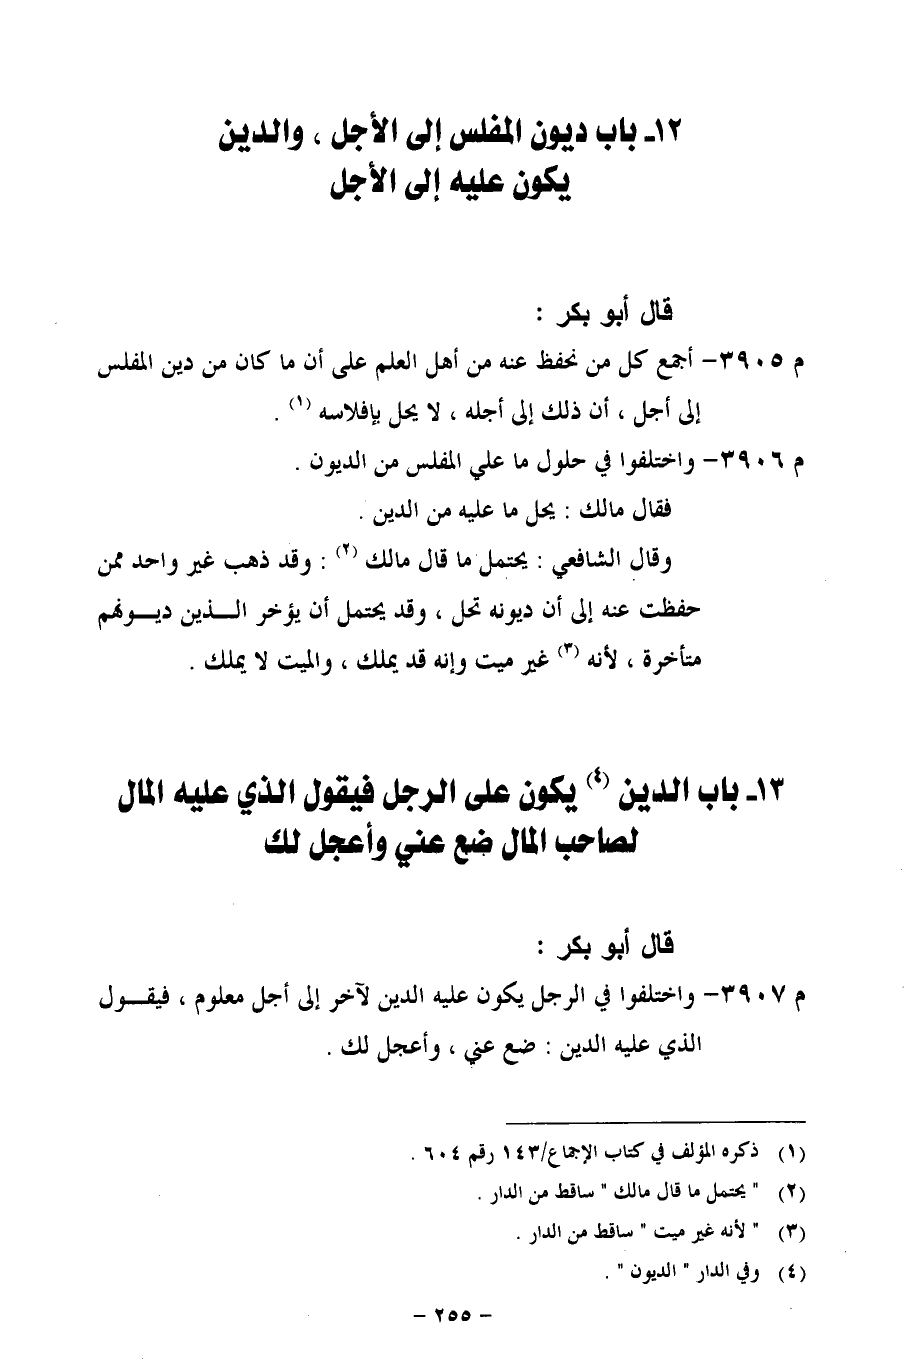 ١٢ـ باب ديون المفلس إلى الأجل ، والدين
يكون عليه إلى الأجل
قال أبو بكر :
م ٣٩٠٥– أجمع كل من نحفظ عنه من أهل العلم على أن ما كان من دين المفلس
إلى أجل ، أن ذلك إلى أجله ، لا يحل بإفلاسه (١) .
م ٣٩٠٦– واختلفوا في حلول ما علي المفلس من الديون .
فقال مالك : يحل ما عليه من الدين .
وقال الشافعي : يحتمل ما قال مالك (٢) : وقد ذهب غير واحد ممن
حفظت عنه إلى أن ديونه تحل ، وقد يحتمل أن يؤخر الـــذين ديـــونهم
متأخرة ، لأنه (٣) غير ميت وإنه قد يملك ، والميت لا يملك .
١٣ـ باب الدين (٤) يكون على الرجل فيقول الذي عليه المال
لصاحب المال ضع عني وأعجل لك
قال أبو بكر :
م ٣٩٠٧– واختلفوا في الرجل يكون عليه الدين لآخر إلى أجل معلوم ، فيقـــول
الذي عليه الدين : ضع عني ، وأعجل لك .
(١) ذكره المؤلف في كتاب الإجماع/١٤٣ رقم ٦٠٤ .
(٢) " يحتمل ما قال مالك " ساقط من الدار .
(٣) " لأنه غير ميت " ساقط من الدار .
(٤) وفي الدار " الديون " .
– ٢٥٥ –